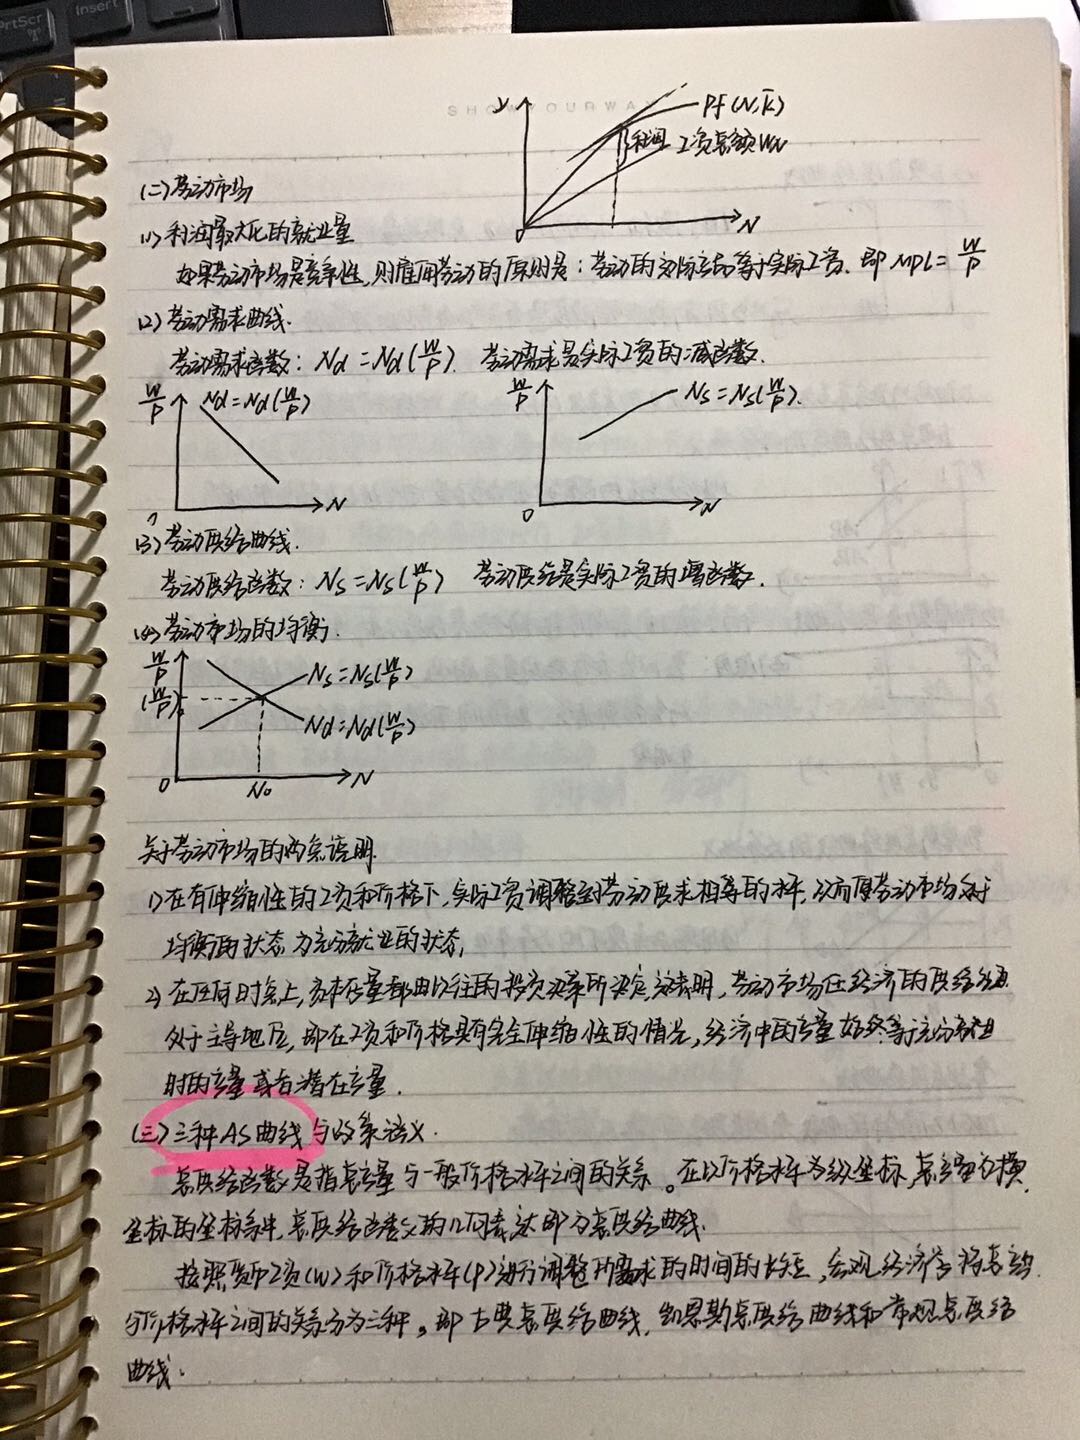 PrtScr
Insert
SHOWYOURWAY
y
Pf(N,K̄)
利润 工资总额WN
0
N
(二)劳动市场
(1)利润最大化的就业量
如果劳动市场是竞争性,则雇佣劳动的原则是:劳动的边际产品等于实际工资,即MPL=W/P
(2)劳动需求曲线.
劳动需求函数:Nd=Nd(W/P). 劳动需求是实际工资的减函数.
W/P Nd=Nd(W/P) W/P Ns=Ns(W/P).
N 0 N
(3)劳动供给曲线.
劳动供给函数:Ns=Ns(W/P) 劳动供给是实际工资的增函数.
(4)劳动市场的均衡.
W/P Ns=Ns(W/P)
(W/P)₀
Nd=Nd(W/P)
0 N₀ N
关于劳动市场的两条说明.
1)在有伸缩性的工资和价格下,实际工资调整到劳动供求相等的水平,从而使劳动市场处于
均衡的状态 为充分就业的状态,
2)在任何时点上,资本存量都由以往的投资决策所决定,这表明,劳动市场在经济的供给方面
处于主导地位,即在工资和价格具有完全伸缩性的情况,经济中的产量始终等于充分就业
时的产量或者潜在产量.
(三)三种AS曲线与政策含义.
总供给函数是指总产量与一般价格水平之间的关系。在以价格水平为纵坐标,总产量为横
坐标的坐标系中,总供给函数的几何表达即为总供给曲线.
按照货币工资(W)和价格水平(P)进行调整所需求的时间的长短,宏观经济学将总产出
与价格水平之间的关系分为三种。即古典总供给曲线,凯恩斯总供给曲线和常规总供给
曲线.